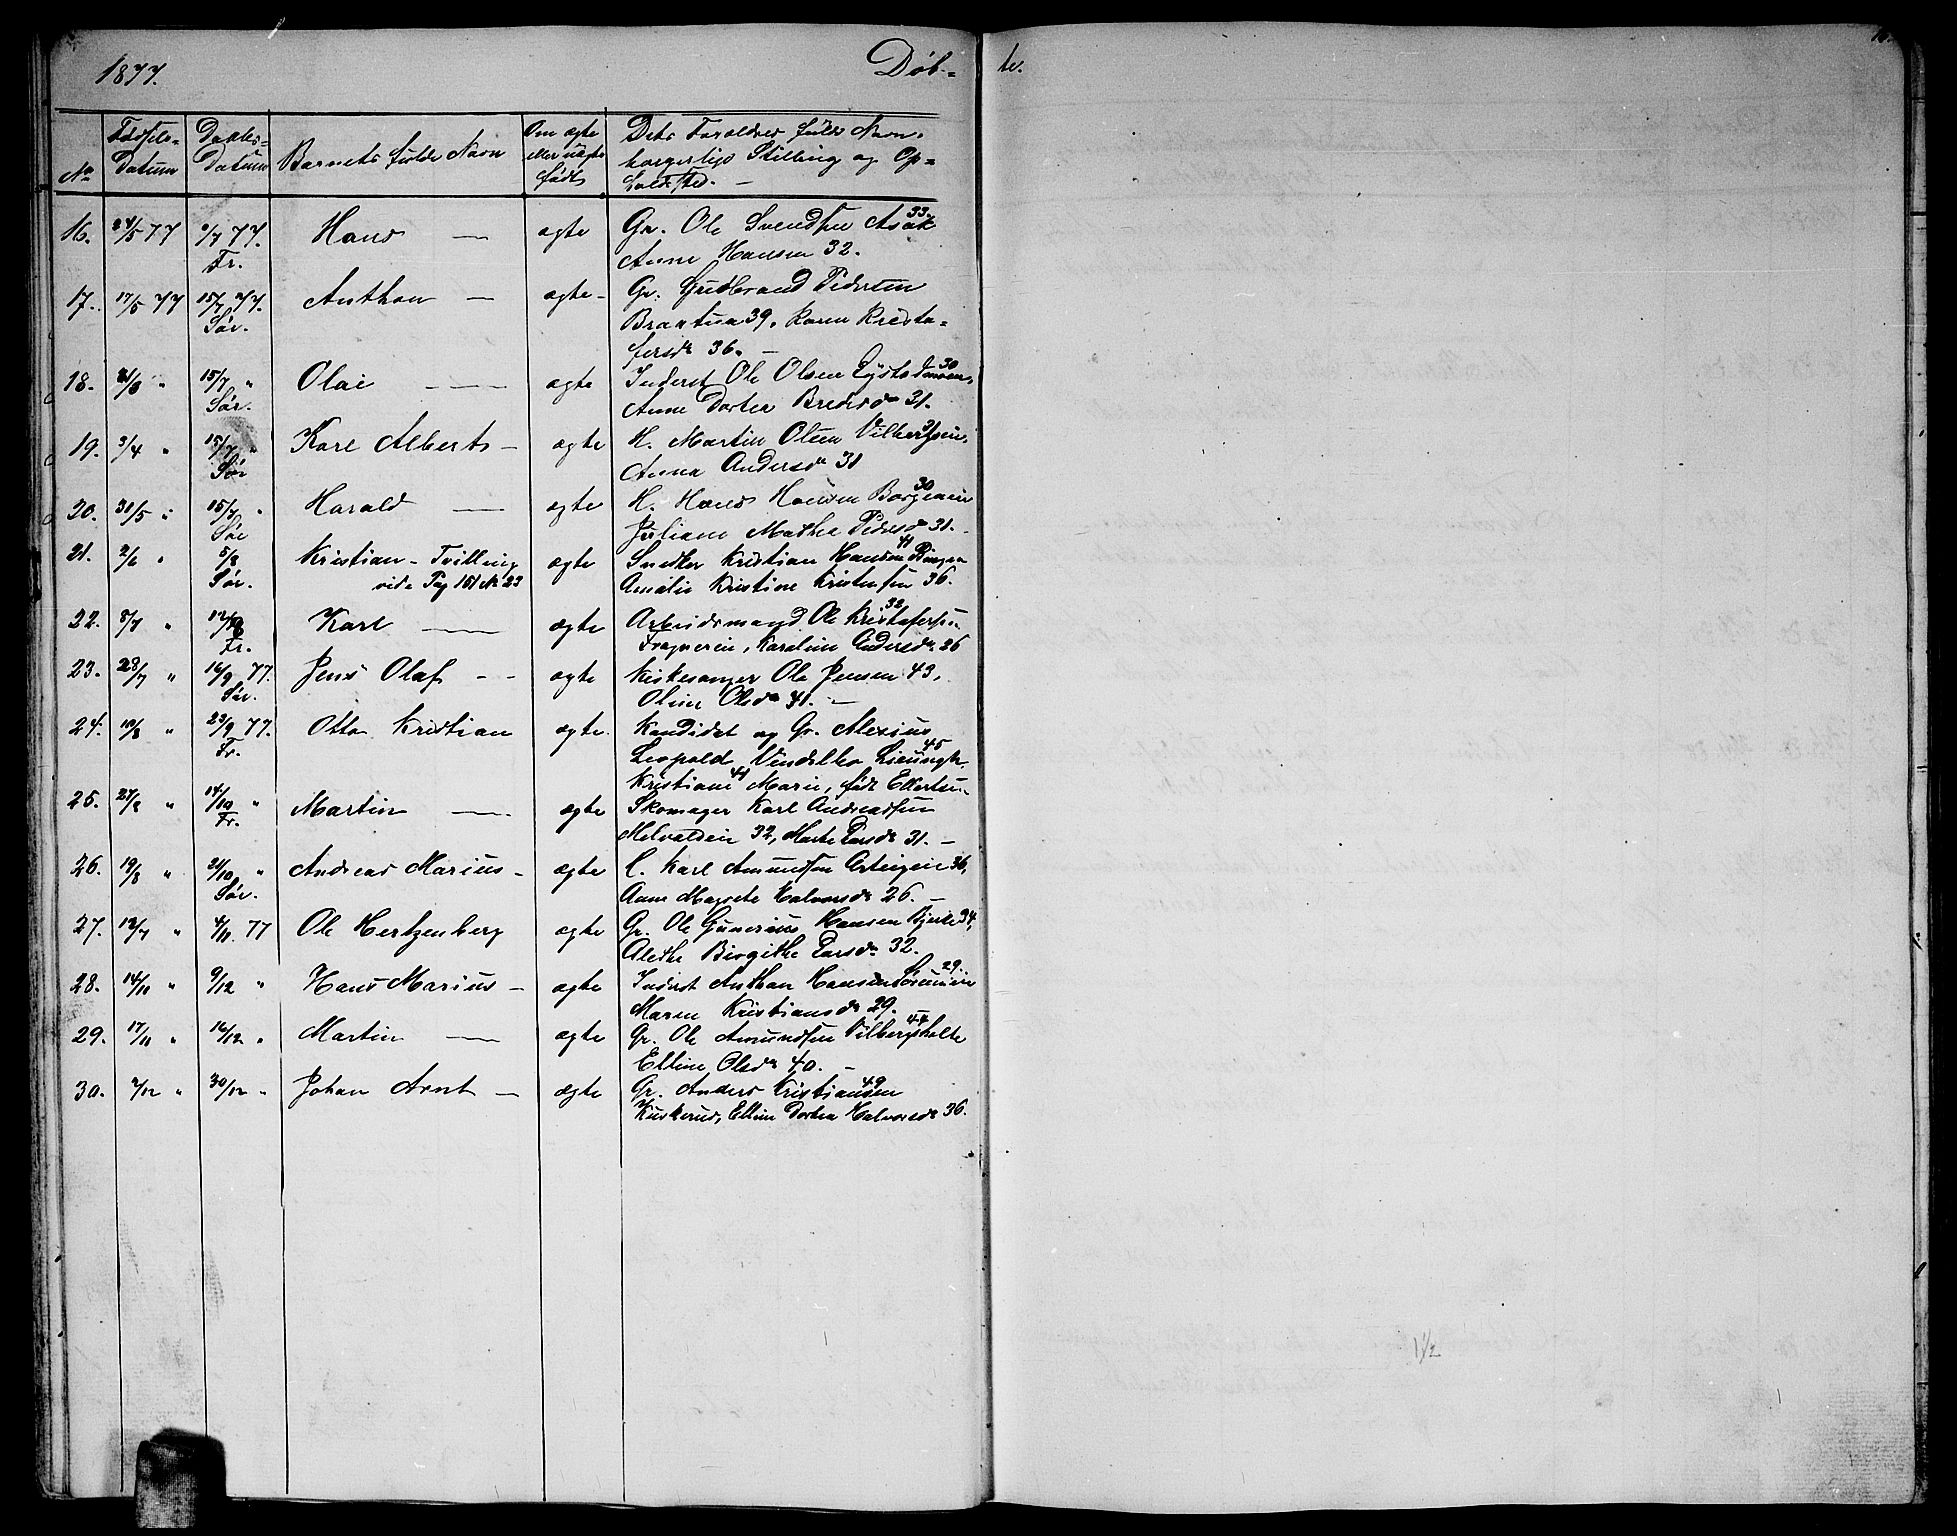 1877. Døb- te.
No Fødsels- Datum Daabs- Datum Barnets fulde Navn Om ægte eller uægte født Dets Forældres fulde Navn,
borgerlige Stilling og Op-
holdssted. —
16. 24/5 77 1/7 77. Hans — ægte Gr. Ole Svendsen Asak 33
Fr. Anne Hansen 32.
17. 17/5 77 15/7 77. Anthon — ægte- Gr. Gudbrand Pedersen
Sør. 39, Karen Krista-
fersdr 36. —
18. 15/7 " Olai — ægte Inderst Ole Olsen 30
Sør. Anne Dortea 31.
19. 3/4 " 15/7 " Karl Albert — ægte H. Martin Olsen 31
Sør Anna Andersdr 31
20. 31/5 " 15/7 " Harald — ægte H. Hans Hansen 30
Sør Juliane Mathea Pedersdr 31.
21. 2/6 " 5/8 Kristian - Tvilling ægte Snedker Kristian Hansen 41
Sør. vide Pag 161 No 23 Amalie Kristine Kristensen 36.
22. 8/7 " Karl — ægte Arbeidsmand Ole Kristofersen 32
Fr. Karoline Andersdr. 36
23. 28/7 " 16/9 77. Jens Olaf - - ægte Kirkesanger Ole Jensen 43,
Sør. Oline Olsdr 41. —
24. 10/8 " 23/9 77. Otto Kristian ægte. Kandidat og Gr. Alexius
Fr. Leopold Vendelbo 45
Kristiane 41 Marie, født
25. 27/8 " 14/10 " Martin — ægte Skomager Karl Andreassen
Fr. 32, Marte Larsdr 31. —
26. 19/8 " 21/10 " Andreas Marius - ægte Karl Amundsen 36,
Sør. Anne Magrete Halvorsdr 26. —
27. 12/7 " 4/11. 77 Ole Hertzenberg ægte Gr. Ole Gunerius Hansen Bjerke 34,
Alethe Birgithe Larsdr 32.
28. 14/10 " 9/12 " Hans Marius - ægte Inderst Anthon Hansen 29
Maren Kristiansdr 29.
29. 17/11 " 16/12 " Martin — ægte Gr. Ole Amundsen Vilbergsholte 44
Elline Olsdr 40. —
30. 2/12 " 30/12 " Johan Arnt — ægte Gr. Anders Kristiansen 49
Kuskerud, Elline Dortea Halvorsdr 36.